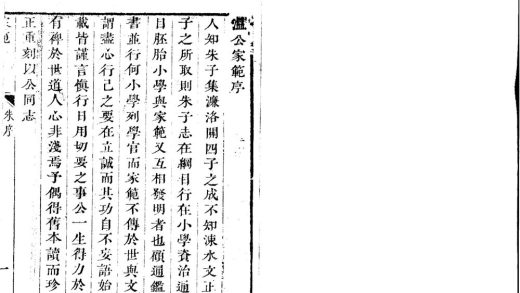 溫公家範序
人知朱子集濂洛關四子之成不知涑水文正
子之所取則朱子志在綱目行在小學資治通
目胚胎小學與家範又互相發明者也顧通鑑
書並行何小學列學官而家範不傳於世與文
謂盡心行己之要在立誠而其功自不妄語始
載皆謹言慎行日用切要之事公一生得力於
有裨於世道人心非淺焉予偶得舊本讀而珍
正重刻以公同志
範 朱序 一